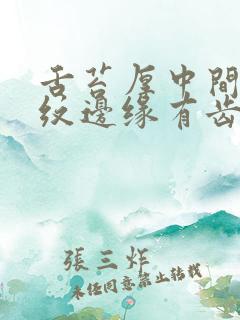 舌苔厚中間
紋邊缘有齿
張三炸
未经同意禁止转载